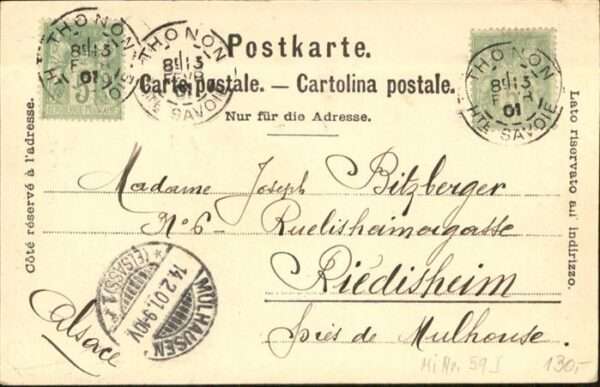 Postkarte.
Carte postale. — Cartolina postale.
Nur für die Adresse.
Côté réservé à l'adresse.
Lato riservato all' indirizzo.
THONON
8E 13
FEVR
01
HTE SAVOIE
THONON
8E 13
FEVR
01
HTE SAVOIE
THONON
8E 13
01
HTE SAVOIE
Madame Joseph Bitzberger
No 6 - Ruelisheimergasse
Riedisheim
près de Mulhouse.
Alsace
MÜLHAUSEN
14.2.01.9-10V.
*(ELSASS)1*
Mi Nr. 59 I
130,-